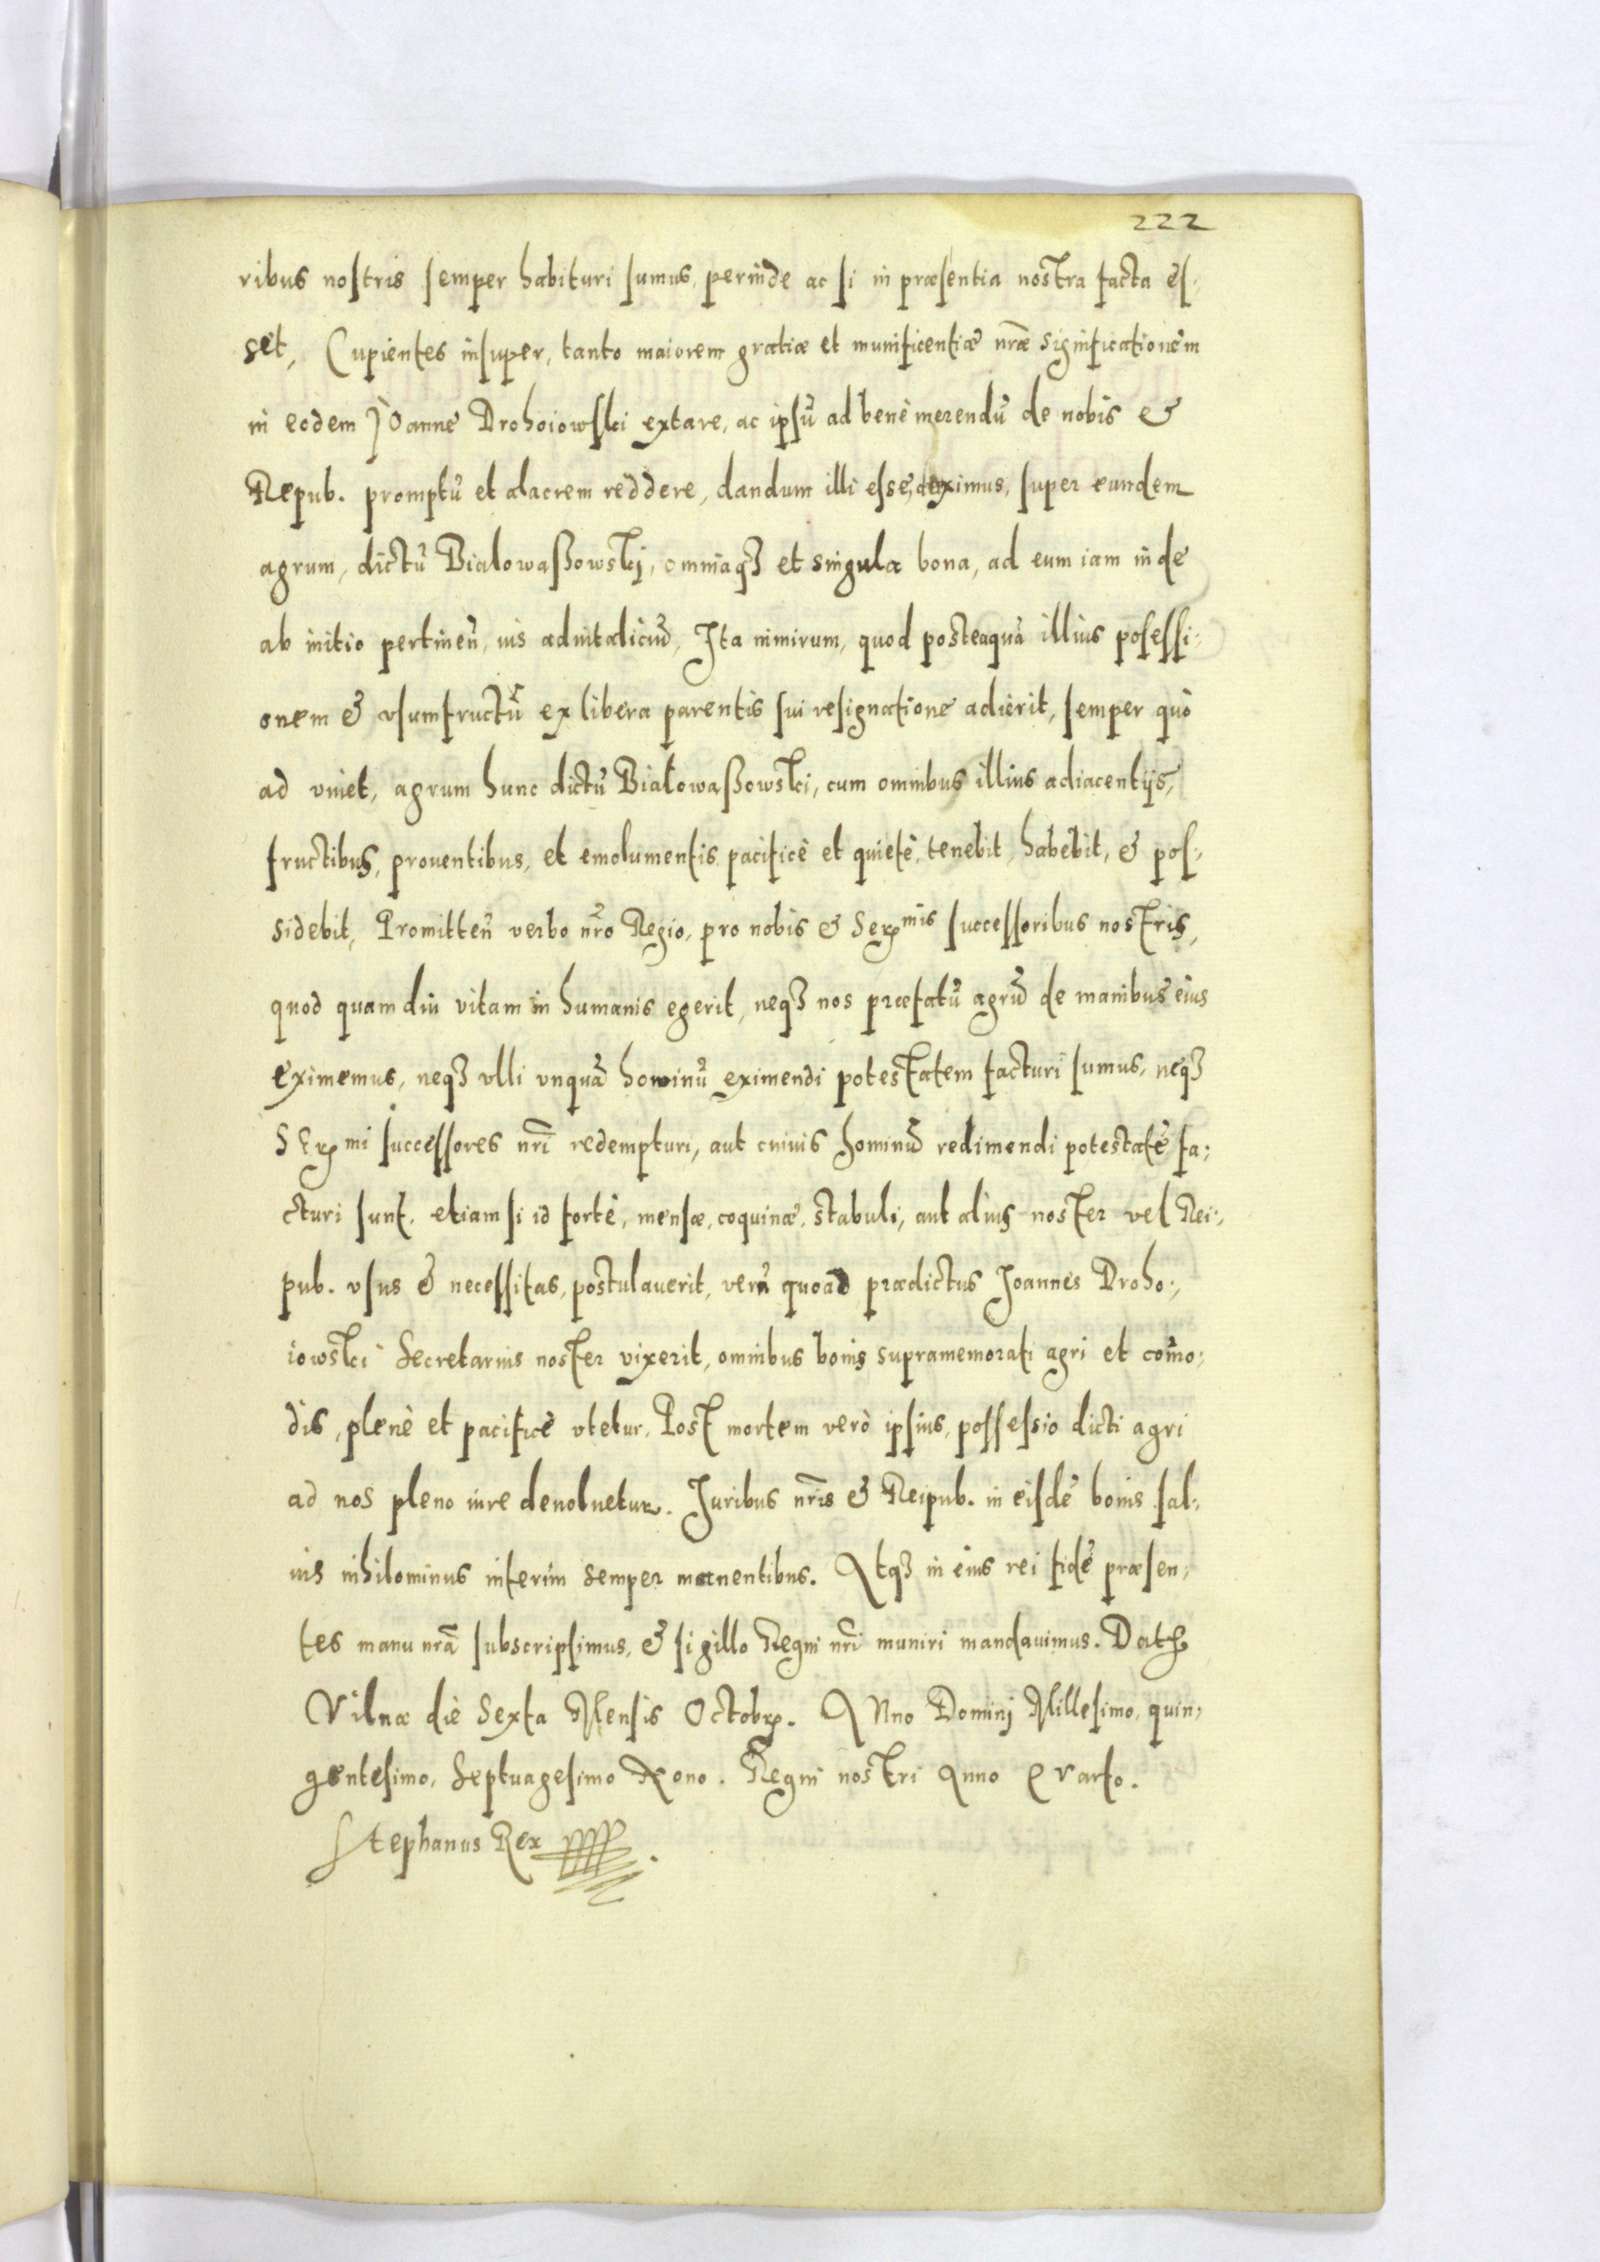 222
ribus nostris semper habituri sumus, perinde ac si in præsentia nostra facta es-
set, Cupientes insuper, tanto maiorem gratiæ et munificentiæ nr̃æ significationem
in eodem Joanne Drohoiowski extare, ac ipsũ ad bene merendũ de nobis &
Repub. promptũ et alacrem reddere, dandum illi esse duximus, super eundem
agrum, dictũ Bialowaßowskj, omniaqȝ et singula bona, ad eum iam inde
ab initio pertineñ, ius aduitaliciũ, Ita nimirum, quod posteaquã illius posessi-
onem & vsumfructũ ex libera parentis sui resignatione adierit, semper quo
ad viuet, agrum hunc dictũ Białowaßowski, cum omnibus illius adiacentijs,
fructibus, prouentibus, et emolumentis pacificè et quietè, tenebit, habebit, & pos-
sidebit, Promitteñ verbo nr̃o Regio, pro nobis & Serꝫmis successoribus nostris,
quod quam diu vitam in humanis egerit, neqȝ nos præfatũ agrũ de manibus eius
eximemus, neqȝ vlli vnquã hominũ eximendi potestatem facturi sumus, neqȝ
Serꝫmi successores nr̃i redempturi, aut cuiuis hominũ redimendi potestatẽ fa-
cturi sunt, etiam si id fortè, mensæ, coquinæ, stabuli, aut alius noster vel Rei-
pub. vsus & necessitas, postulauerit, verũ quoad prædictus Joannes Droho-
iowski Secretarius noster vixerit, omnibus bonis supramemorati agri et com̃o-
dis, plenè et pacificè vtetur, Post mortem verò ipsius, possessio dicti agri
ad nos pleno iure deuoluetur. Juribus nr̃is & Reipub. in eisdẽ bonis sal-
uis nihilominus interim semper manentibus. Atqȝ in eius rei fidẽ præsen-
tes manu nr̃a subscripsimus, & sigillo Regni nr̃i muniri mandauimus. Datꝫ
Vilnæ die Sexta Mensis Octobrꝫ. Anno Dominj Millesimo, quin-
gentesimo, Septuagesimo Nono. Regni nostri Anno Quarto.
Stephanus Rex